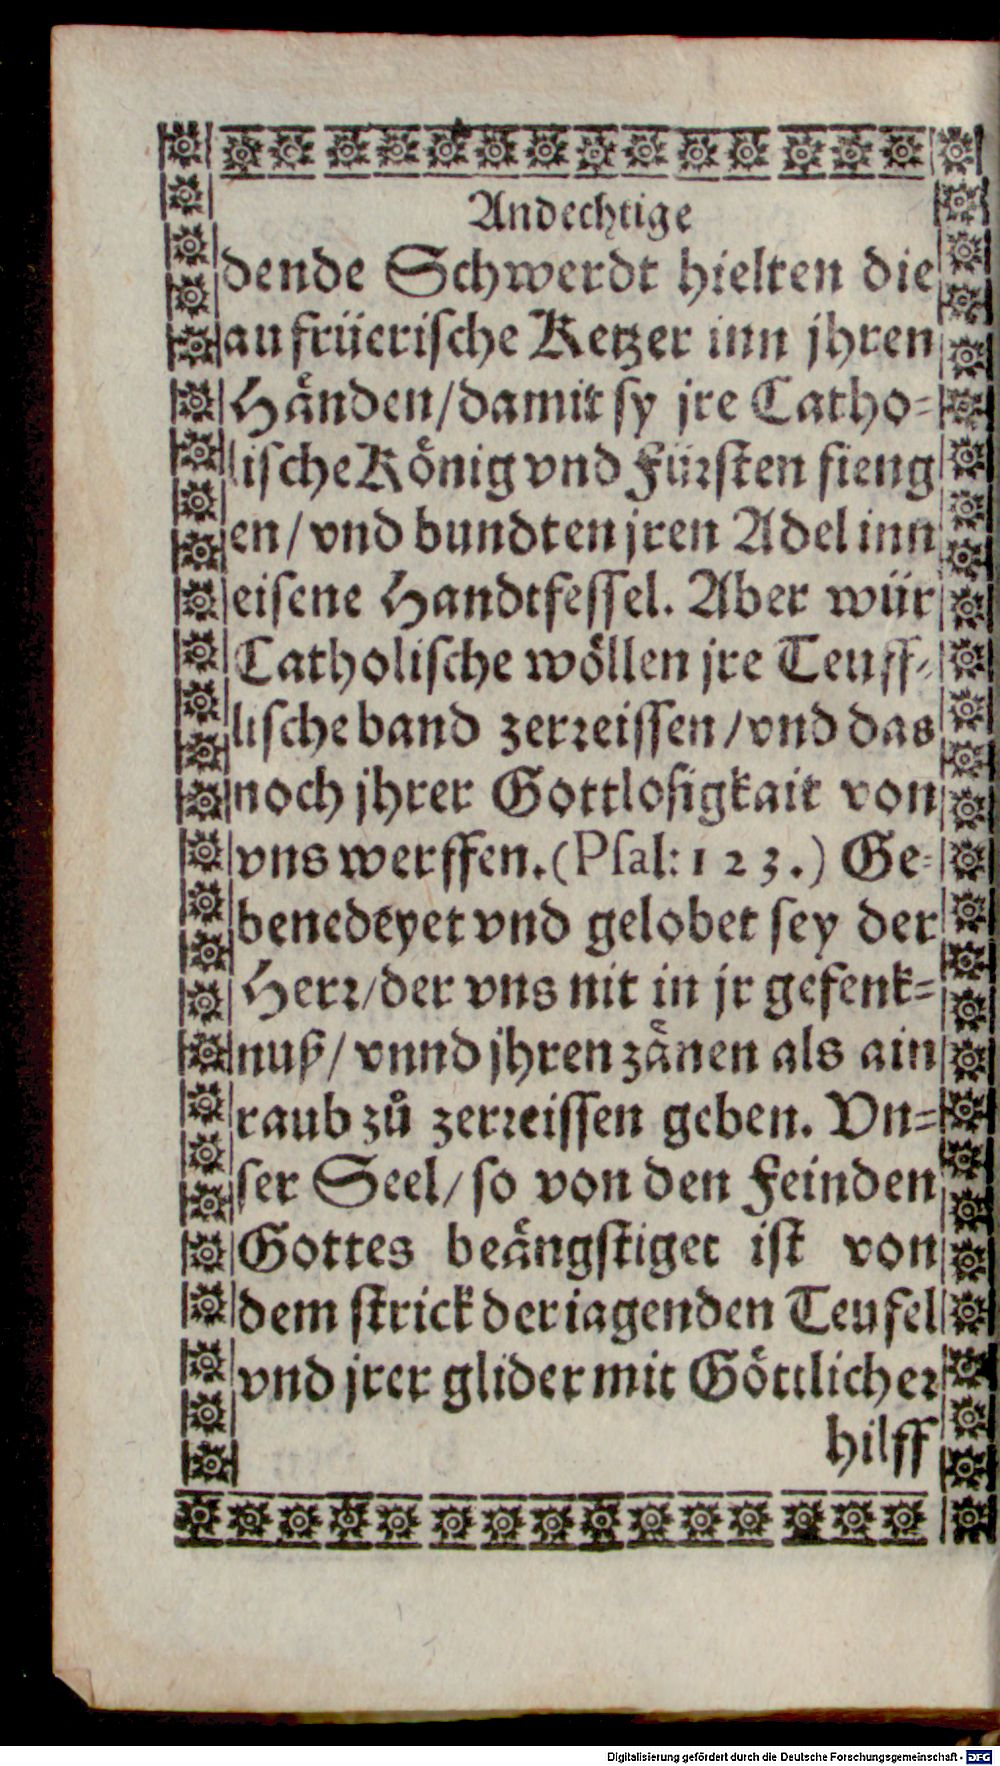 Andechtige
dende Schwerdt hielten die
aufrüerische Ketzer inn jhren
Hånden/damit sy jre Catho-
lische Kőnig vnd Fürsten fieng
en/vnd bundten jren Adel inn
eisene Handtfessel. Aber wür
Catholische wőllen jre Teuff-
lische band zerreissen/vnd das
noch jhrer Gottlosigkait von
vns werffen.(Psal: 123.) Ge-
benedeyet vnd gelobet sey der
Herr/der vns nit in jr gefenk-
nuß/vnnd jhren zånen als ain
raub zů zerreissen geben. Vn-
ser Seel/so von den Feinden
Gottes beångstiget ist von
dem strick der iagenden Teufel
vnd jrer glider mit Gőttlicher
hilff
Digitalisierung gefördert durch die Deutsche Forschungsgemeinschaft - DFG